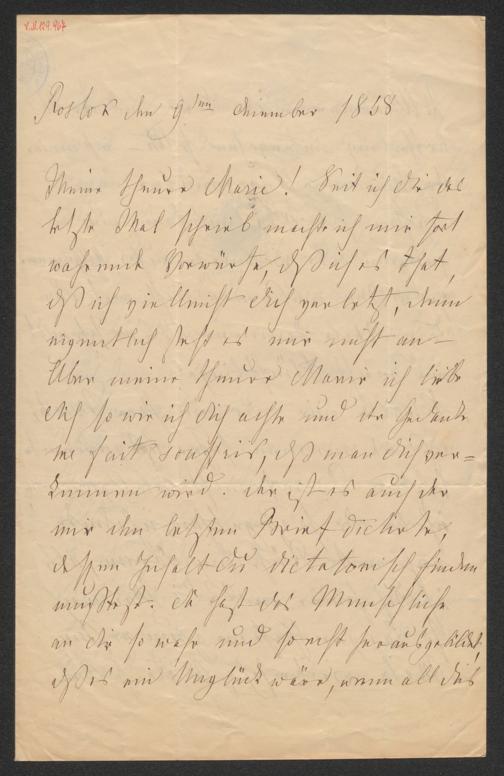 I.N.129.967
Rostok den 9ten December 1858
Meine theure Marie! Seit ich dir das
letzte Mal schrieb machte ich mir fort
während Vorwürfe, daß ich es that,
daß ich vielleicht dich verletzt, denn
eigentlich steht es mir nicht an –
Aber meine theure Marie ich liebe
dich so wie ich dich achte und der Gedanke
me fait souffrir, daß man dich ver=
kennen wird. der ist es auch der
mir den letzten Brief dictirte,
dessen Inhalt du dictatorisch finden
mußtest. du hast das Menschliche
an dir so wahr und so echt herausgebildet,
daß es ein Unglück wäre, wenn all dies